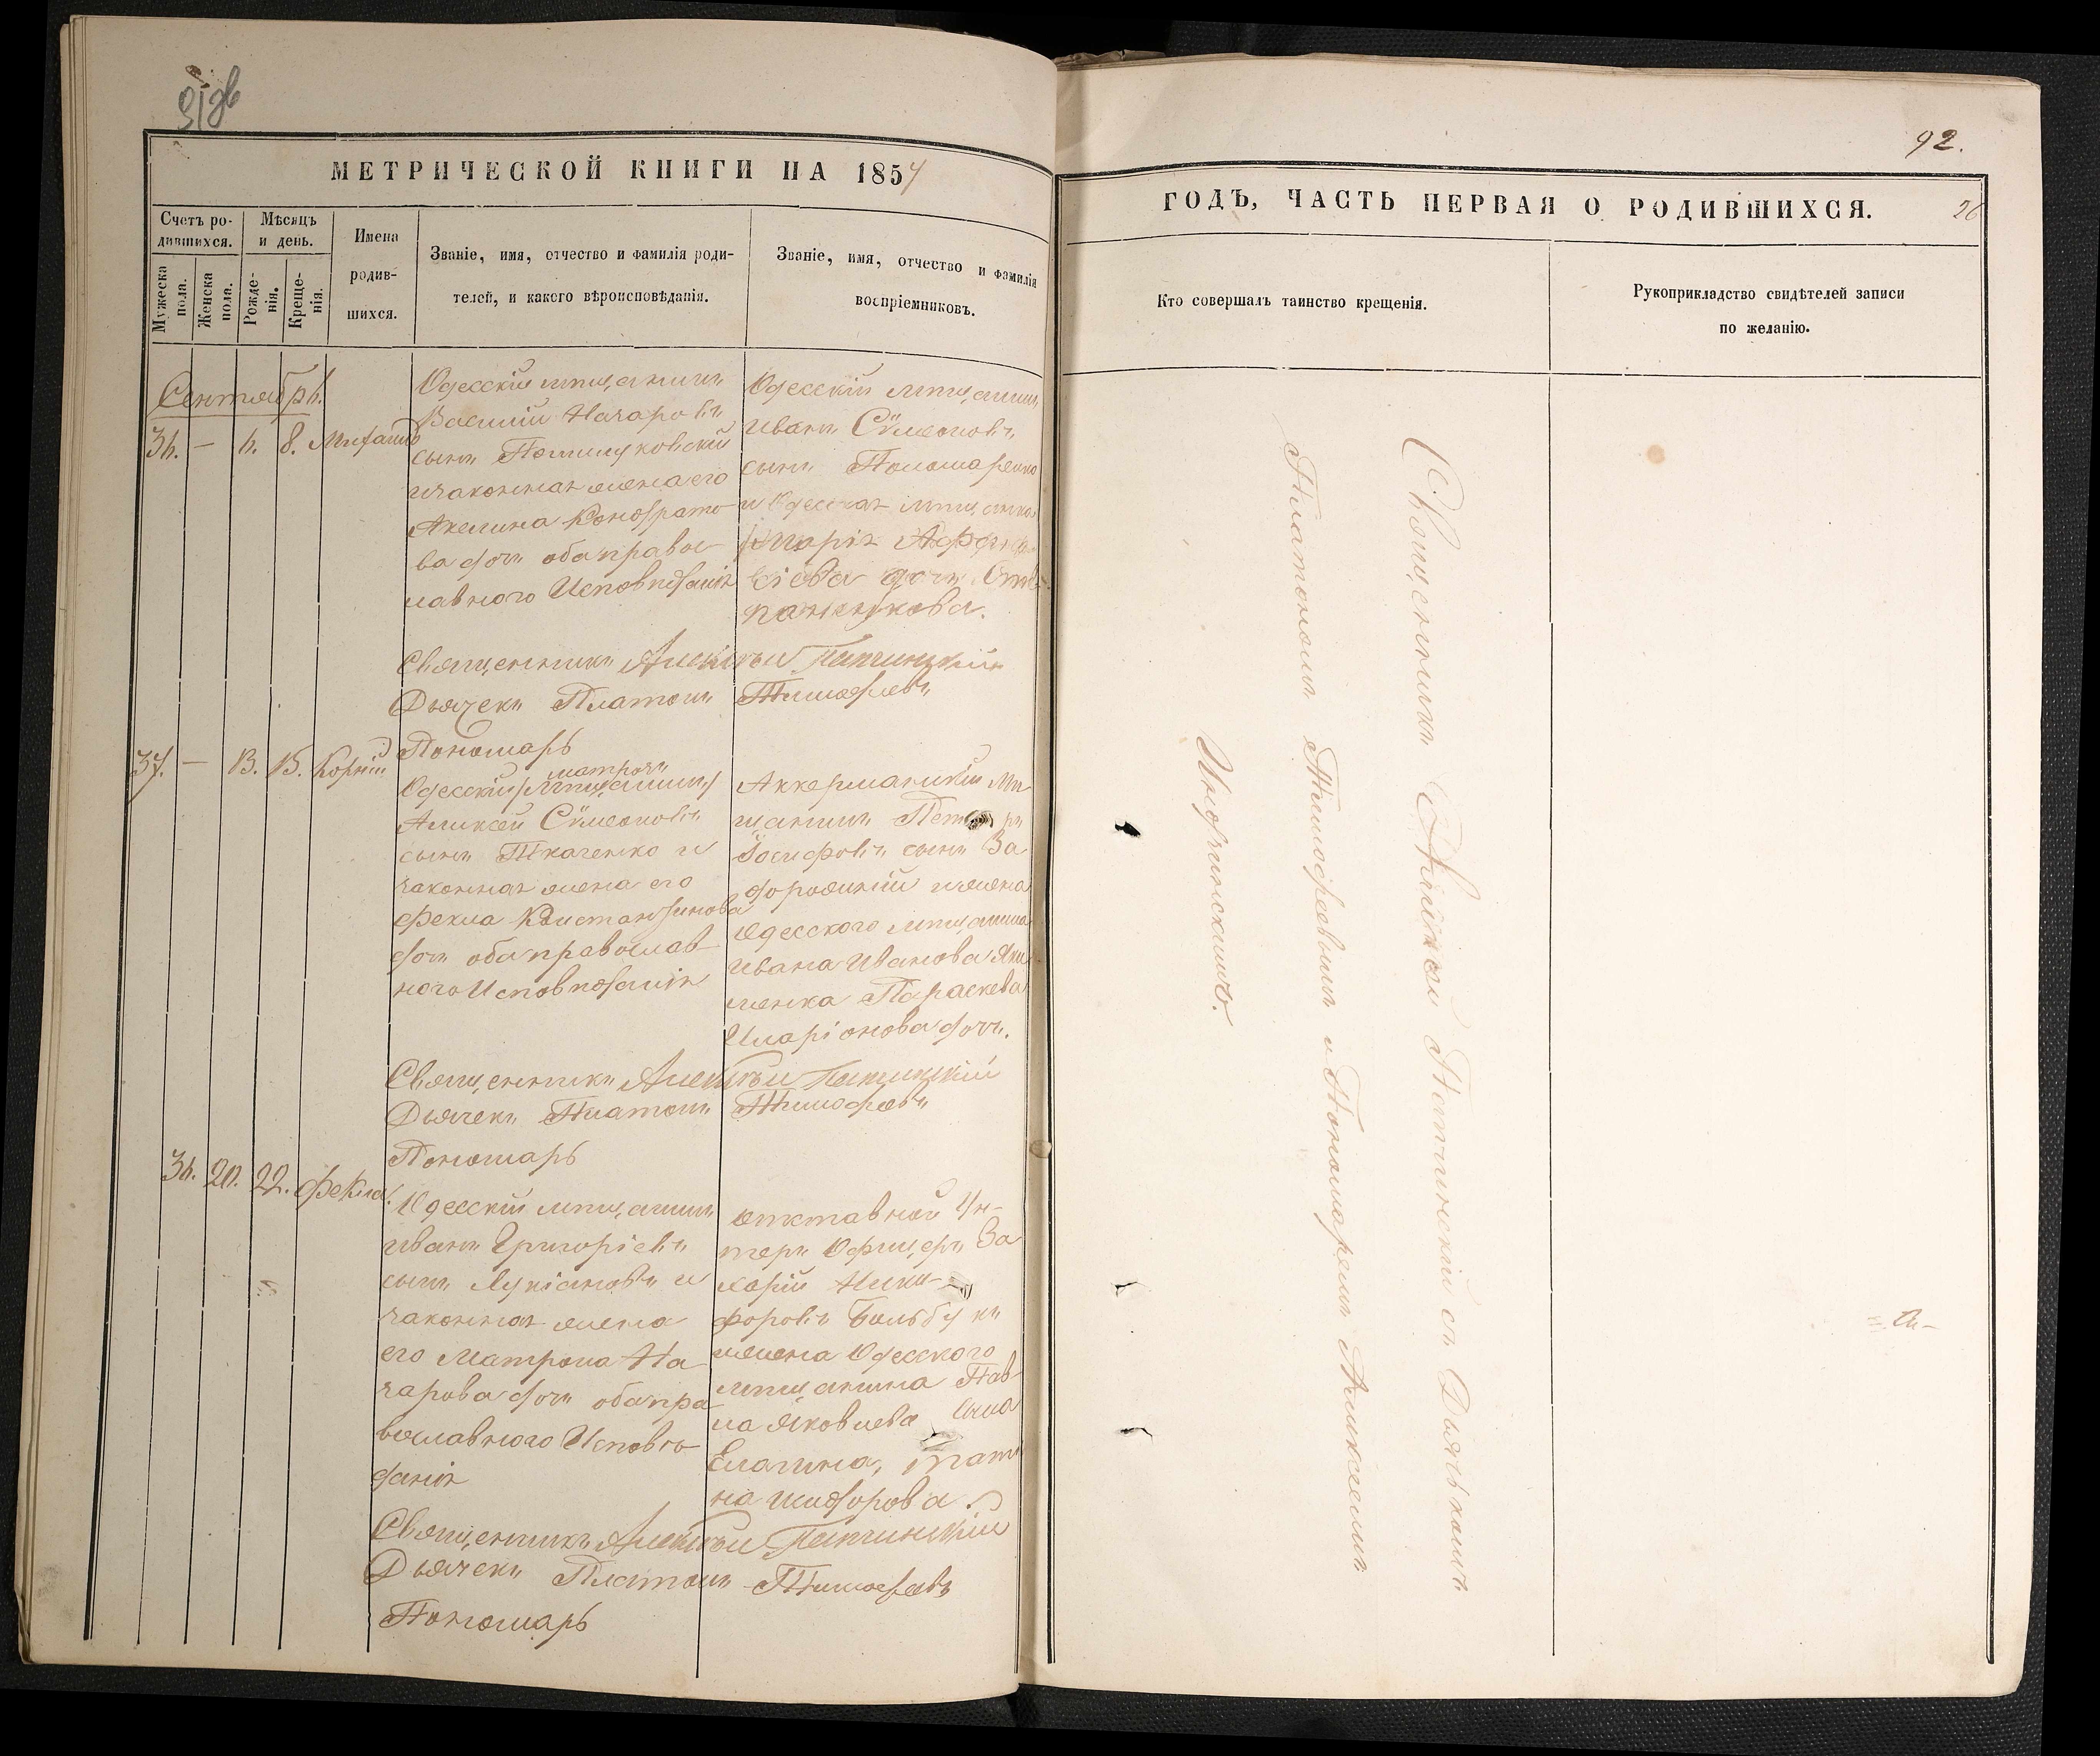 МЕТРИЧЕСКОЙ КНИГИ НА 1854
Счетъ ро-
дившихся.
Мѣсяцъ
и день.
Имена
родив-
шихся.
Званіе, имя, отчество и фамилія роди-
телей, и какого вѣроисповѣданія.
Званіе, имя, отчество и фамилія
воспріемниковъ.
Мужеска
пола.
Женска
пола.
Рожде-
нія.
Креще-
нія.
Сентябрь.
36. — 6. 8. Михаилъ
Одесскій мѣщанинъ
Василій Назаровъ
сынъ
и законная жена его
Акелина Кондрато-
ва дочь оба правос-
лавного Исповѣданія
Одесскій мѣщанинъ
Иванъ Сѵмеоновъ
сынъ Пономаренко
и Одесская мѣщанка
Марія Афана
сіева дочь Сте-
паненкова.
Священникъ Алексѣй
Дьячекъ Платонъ Тимофѣевъ
Пономарь
37. — 13. 15. Корній
матрозъ
Одесскій /мѣщанинъ/
Алексей Сѵмеоновъ
сынъ Ткаченко и
законная жена его
Фекла Констандинова
дочь оба православ-
ного Исповѣданія
Аккерманскій мѣ
щанинъ Петръ
Іосифовъ сынъ За
дорожній и жена
Одесского мѣщанина
Ивана Иванова Яки
менка Параскева
Иларіонова дочь.
Священникъ Алексѣй
Дьячекъ Платонъ Тимофѣевъ
Пономарь
36. 20. 22. Фекла.
Одесскій мѣщанинъ
Иванъ Григоріевъ
сынъ Лукіановъ и
законная жена
его Матрона На
зарова дочь оба пра
вославного Исповѣ
данія
отставной Ун-
теръ Офицеръ За
харій Ники-
форовъ
и жена Одесского
мѣщанина Пав
ла Яковлева сына
Елагина,
на
Священникъ Алексѣй
Дьячекъ Платонъ Тимофѣевъ
Пономарь
92.
ГОДЪ, ЧАСТЬ ПЕРВАЯ О РОДИВШИХСЯ.
26
Кто совершалъ таинство крещенія.
Рукоприкладство свидѣтелей записи
по желанію.
Священникъ Алексей съ Дьячькомъ
Платономъ Тимофеевымъ и Пономаремъ Алексеемъ